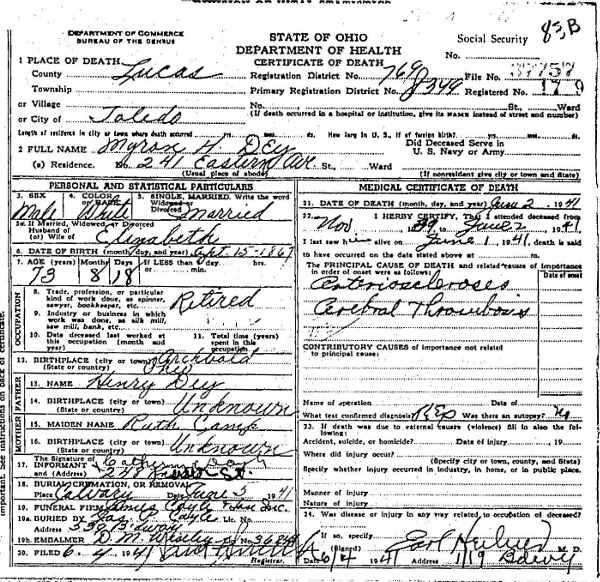 83B
DEPARTMENT OF COMMERCE
BUREAU OF THE CENSUS
STATE OF OHIO
DEPARTMENT OF HEALTH
CERTIFICATE OF DEATH
Social Security
No.
1 PLACE OF DEATH
County Lucas
Registration District No. 769 File No. 37757
Township
Primary Registration District No. 8349 Registered No. 179
or Village
No. St., Ward
or City of Toledo
(If death occurred in a hospital or institution, give its NAME instead of street and number)
Length of residence in city or town where death occurred yrs. mos. ds. How long in U. S., if of foreign birth? yrs. mos. ds.
2 FULL NAME Myron H. Dey
Did Deceased Serve in
U. S. Navy or Army.
(a) Residence. No. 241 Eastern Ave St., Ward
(Usual place of abode)
(If nonresident give city or town and State)
PERSONAL AND STATISTICAL PARTICULARS
3. SEX Male
4. COLOR or RACE White
5. SINGLE, MARRIED, Widowed or Divorced Write the word Married
5a. If Married, Widowed or Divorced
Husband of
(or) Wife of Elizabeth
6. DATE OF BIRTH (month, day, and year) Sept 15-1867
7. AGE (years) 73 Months 8 Days 18 IF LESS than 1 day, hrs. or min.
OCCUPATION
8. Trade, profession, or particular
kind of work done, as spinner,
sawyer, bookkeeper, etc. Retired
9. Industry or business in which
work was done, as silk mill,
saw mill, bank, etc.
10. Date deceased last worked at
this occupation (month and
year)
11. Total time (years)
spent in this
occupation
12. BIRTHPLACE (city or town) Archbold
(State or country) Ohio
FATHER
13. NAME Henry Dey
14. BIRTHPLACE (city or town) Unknown
(State or country)
MOTHER
15. MAIDEN NAME Ruth Camp
16. BIRTHPLACE (city or town) Unknown
(State or country)
The Signature of
17. INFORMANT
and (Address)
18. BURIAL, CREMATION, OR REMOVAL
Place Calvary Date June 5 1941
19. FUNERAL FIRM
19a. BURIED BY Lic. No.
Address
19b. EMBALMER D. M. Lic. No.
20. FILED 6-4 1941
Registrar.
MEDICAL CERTIFICATE OF DEATH
21. DATE OF DEATH (month, day, and year) June 2 1941
22. I HERBY CERTIFY, That I attended deceased from
Nov 1939, to June 2, 1941
I last saw him alive on June 1, 1941, death is said
to have occurred on the date stated above at m.
The PRINCIPAL CAUSE OF DEATH and related causes of importance
in order of onset were as follows:
Date of onset
Arteriosclerosis
Cerebral Thrombosis
CONTRIBUTORY CAUSES of importance not related
to principal cause:
Name of operation Date of
What test confirmed diagnosis? Was there an autopsy? No
23. If death was due to external causes (violence) fill in also the following:
Accident, suicide, or homicide? Date of injury 19
Where did injury occur?
(Specify city or town, county, and State)
Specify whether injury occurred in industry, in home, or in public place.
Manner of injury
Nature of injury
24. Was disease or injury in any way related to occupation of deceased?
If so, specify
(Signed) Earl M. D.
6/4 1941
important. See instructions on back of certificate.